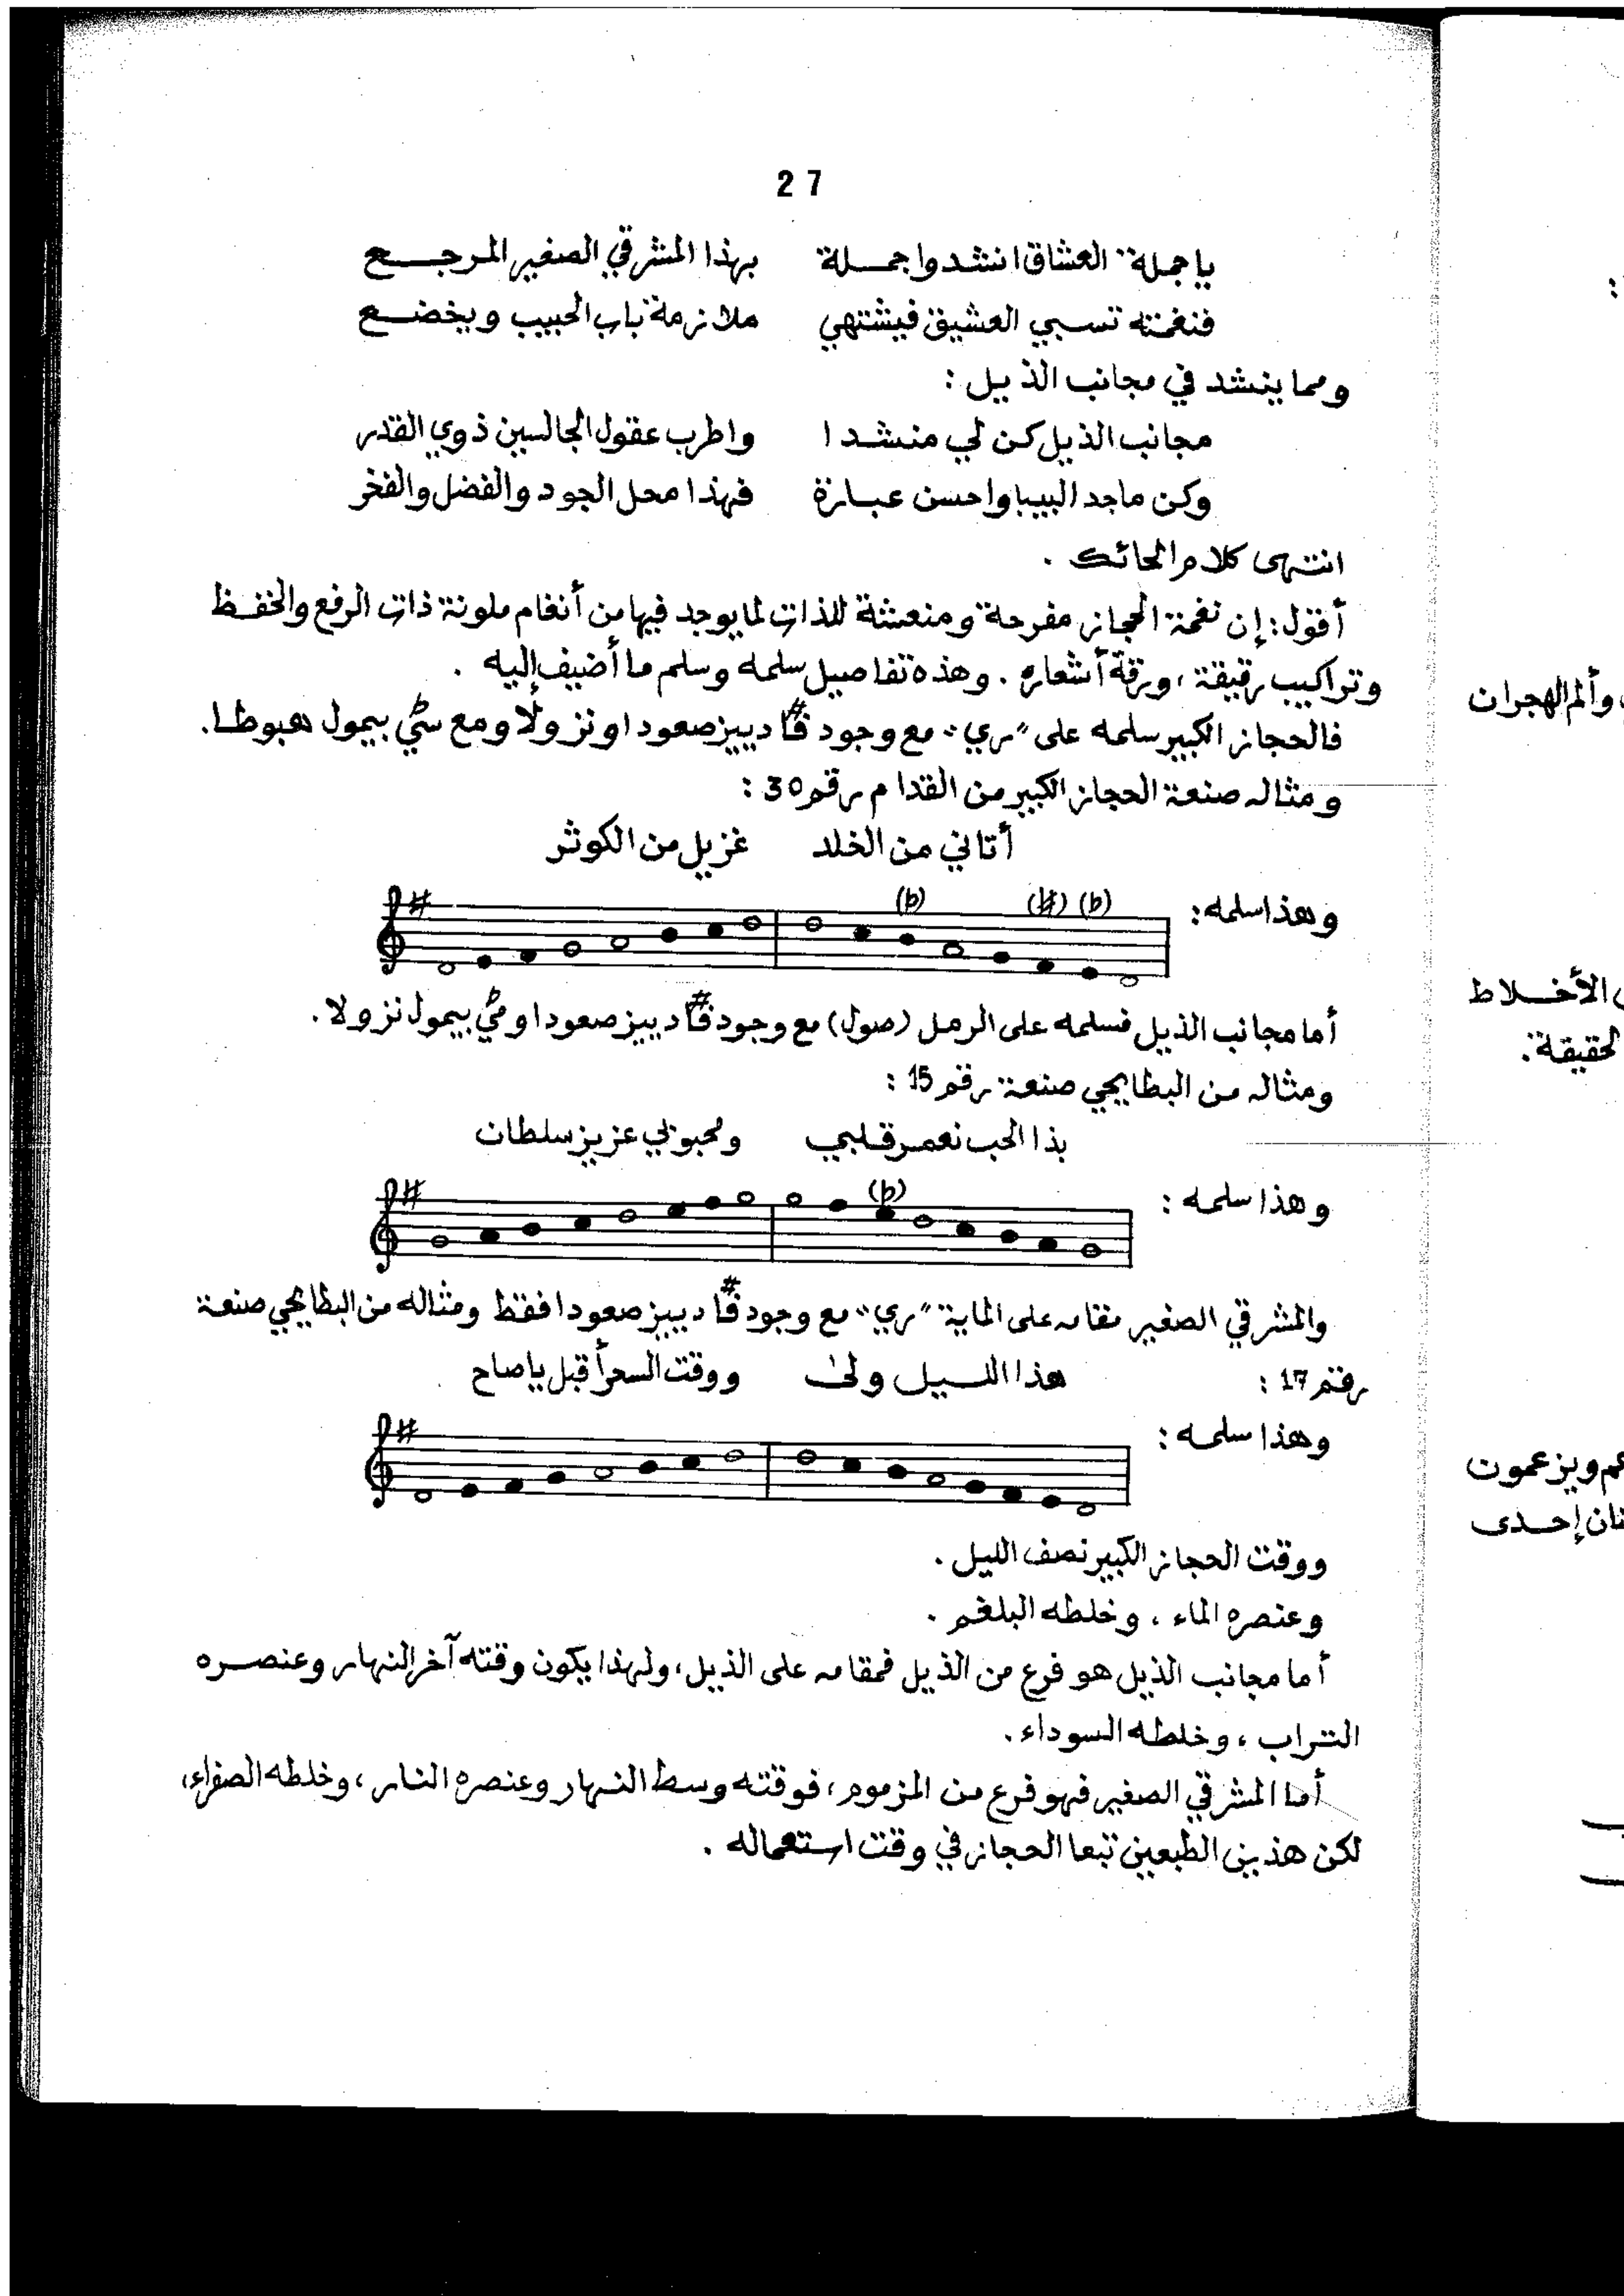 27
يا جملة العشاق انشدوا جملة بهذا المشرقي الصغير المرجع
فنغمته تسبي العشيق فيشتهي ملازمة باب الحبيب ويخضع
ومما ينشد في مجانب الذيل :
مجانب الذيل كن لي منشدا واطرب عقول الجالسين ذوي القدر
وكن ماجد البيبا واحسن عبارة فهذا محل الجود والفضل والفخر
انتهى كلام الحائك .
أقول : إن نغمة الحجاز مفرحة ومنعشة للذات لما يوجد فيها من أنغام ملونة ذات الرفع والخفظ
وتراكيب رقيقة ، ورقة أشعاره . وهذه تفاصيل سلمه وسلم ما أضيف إليه .
فالحجاز الكبير سلمه على "ري" مع وجود فا# دييز صعودا ونزولا ومع سي بيمول هبوطا .
ومثاله صنعة الحجاز الكبير من القدام رقم 30 :
أتاني من الخلد غزيل من الكوثر
وهذا سلمه : (b) (#) (b) #
أما مجانب الذيل فسلمه على الرمل (صول) مع وجود فا# دييز صعودا ومي بيمول نزولا .
ومثاله من البطايحي صنعة رقم 15 :
بذا الحب نعمر قلبي ولمحبوبي عزيز سلطان
وهذا سلمه : (b) #
والمشرقي الصغير مقامه على الماية "ري" مع وجود فا# دييز صعودا فقط ومثاله من البطايحي صنعة
رقم 17 : هذا الليل ولى ووقت السحر أقبل يا صاح
وهذا سلمه : #
ووقت الحجاز الكبير نصف الليل .
وعنصره الماء ، وخلطه البلغم .
أما مجانب الذيل هو فرع من الذيل فمقامه على الذيل ، ولهذا يكون وقته آخر النهار وعنصره
التراب ، وخلطه السوداء .
أما المشرقي الصغير فهو فرع من المزموم ، فوقته وسط النهار وعنصره النار ، وخلطه الصفراء ،
لكن هذين الطبعين تبعا الحجاز في وقت استعماله .
وألم الهجران
الأخلاط
لحقيقة .
ويزعمون
إحدى